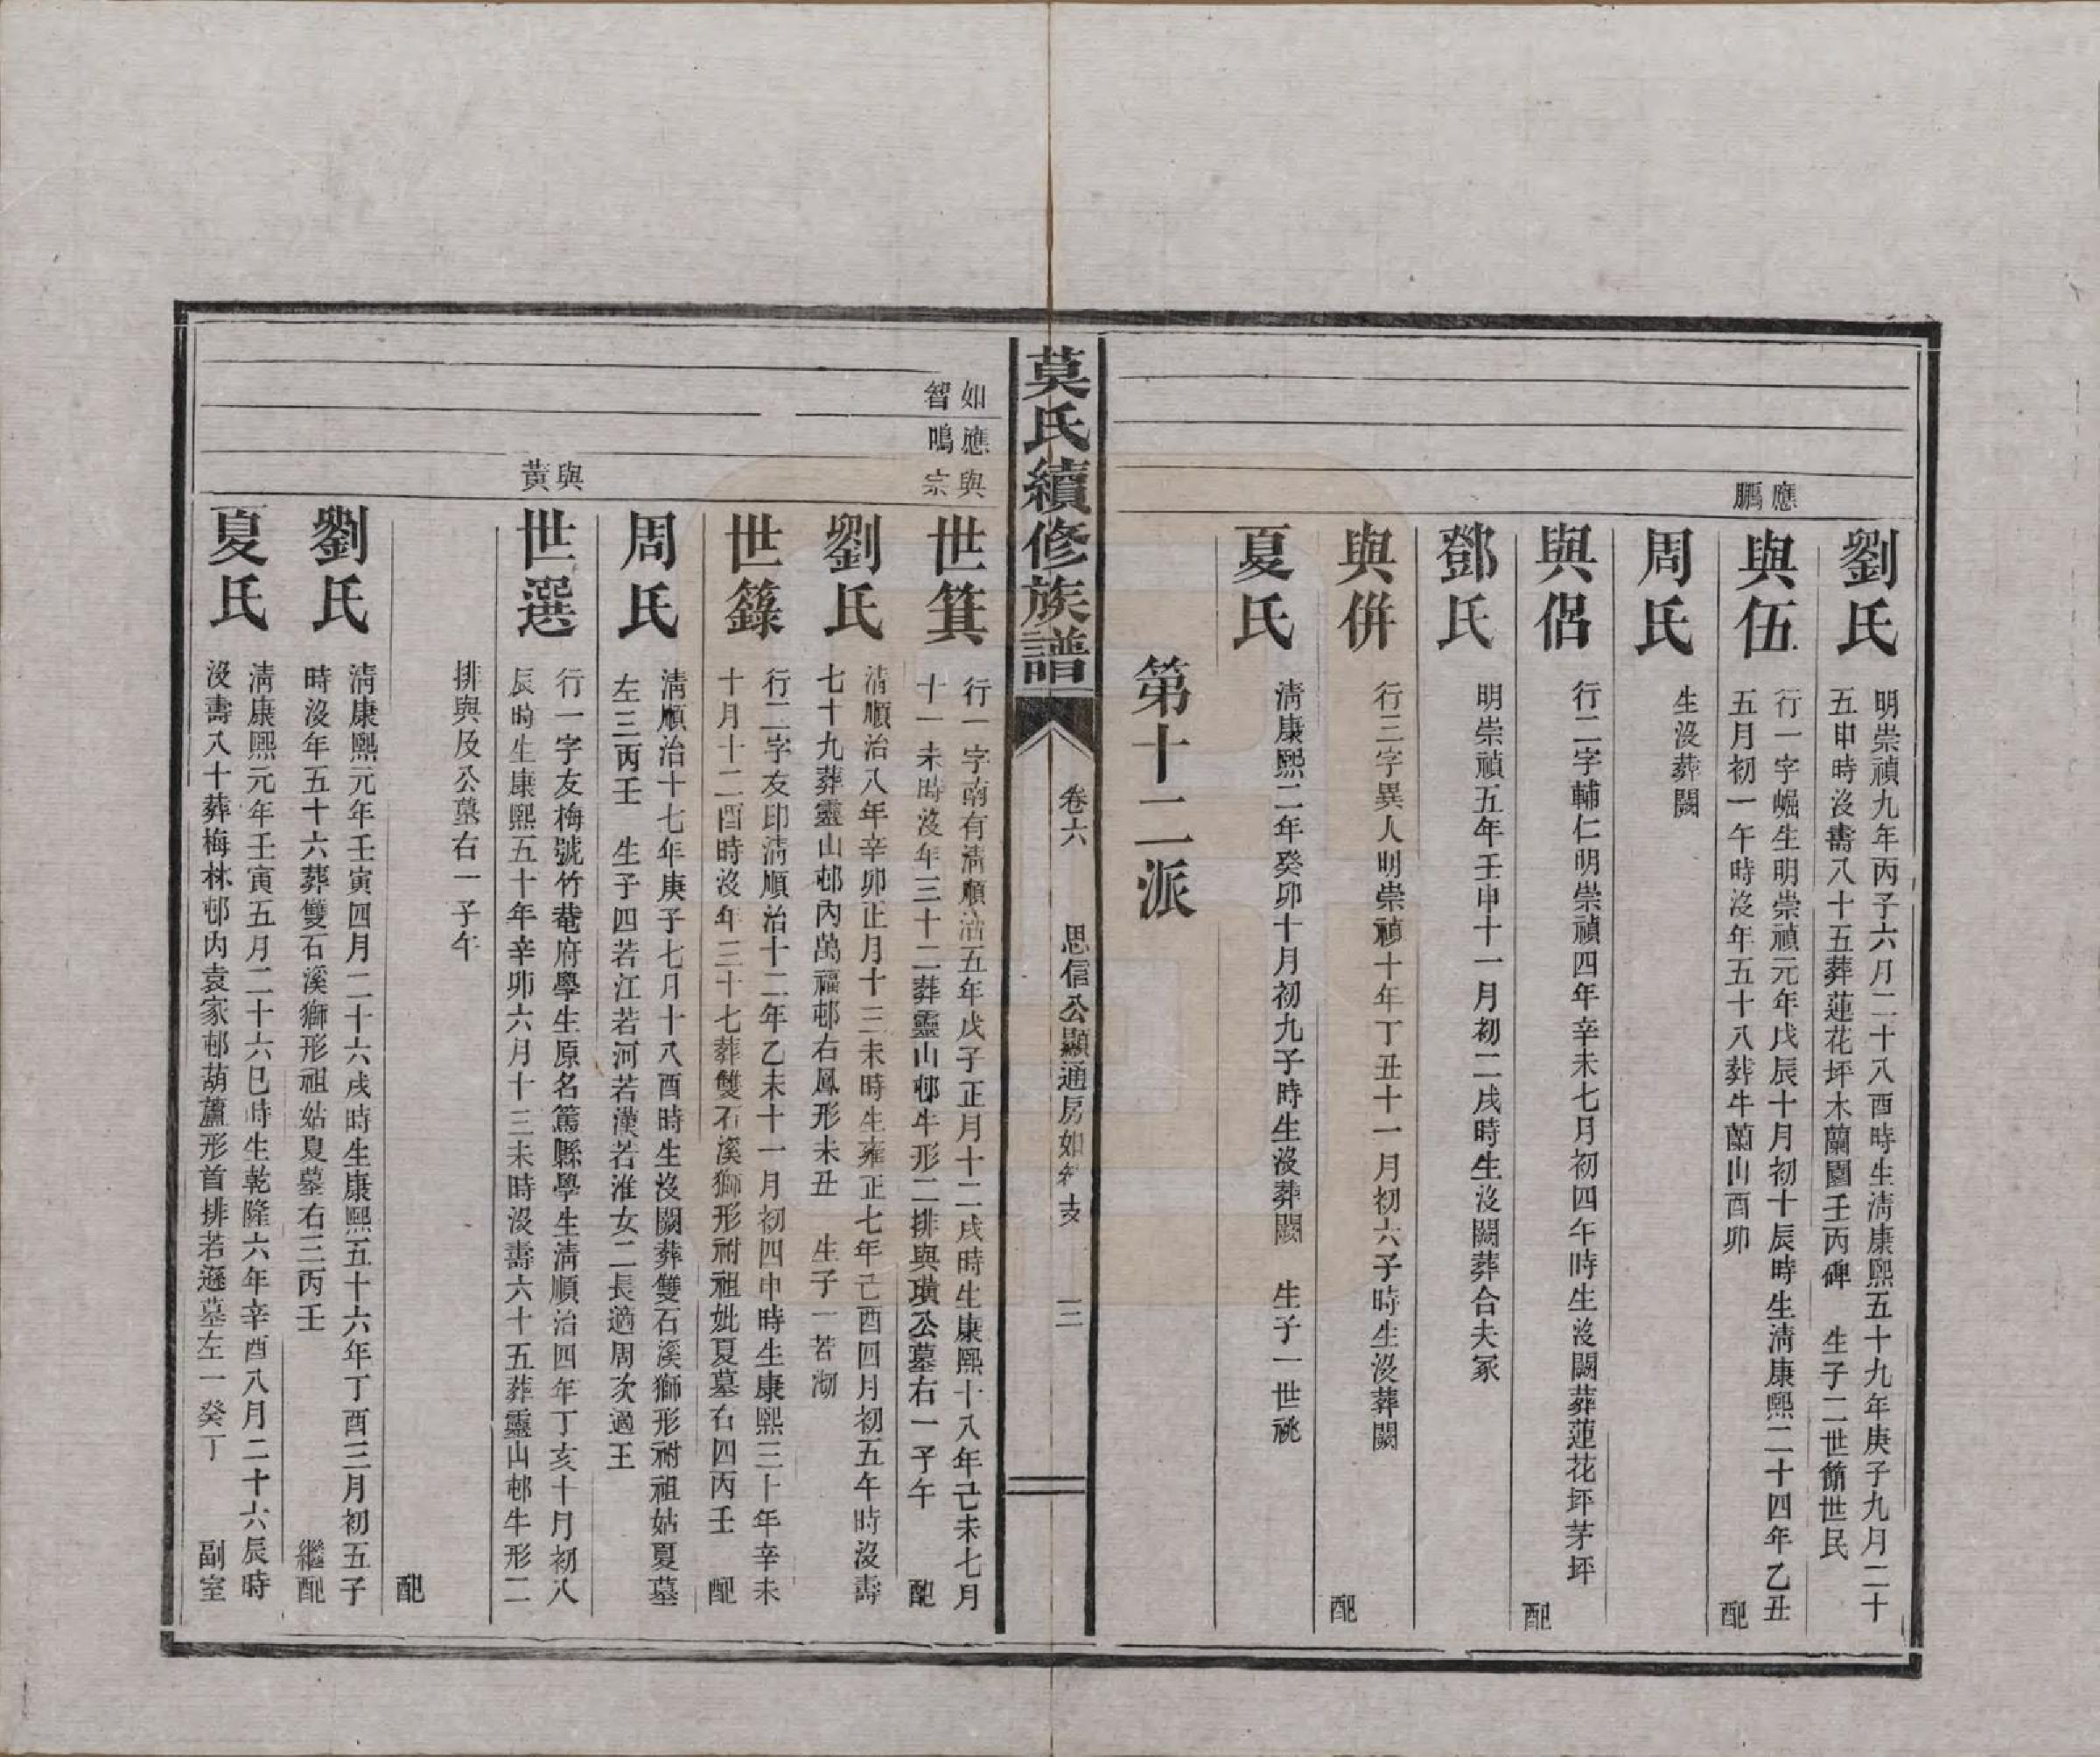 劉氏
明崇禎九年丙子六月二十八酉時生淸康熙五十九年庚子九月二十
五申時沒壽八十五葬蓮花坪木蘭園壬丙碑　生子二世簡世民
應鵬
與伍
行一字崛生明崇禎元年戊辰十月初十辰時生淸康熙二十四年乙丑
五月初一午時沒年五十八葬牛蘭山酉卯　配
周氏
生沒葬闕
與侶
行二字輔仁明崇禎四年辛未七月初四午時生沒闕葬蓮花坪茅坪
配
鄧氏
明崇禎五年壬申十一月初二戌時生沒闕葬合夫冢
與倂
行三字異人明崇禎十年丁丑十一月初六子時生沒葬闕
配
夏氏
淸康熙二年癸卯十月初九子時生沒葬闕　生子一世祧
第十二派
莫氏續修族譜
卷六　思信公顯通房如智支　三
如智
應鳴
與宗
世箕
行一字南有淸順治五年戊子正月十二戌時生康熙十八年己未七月
十一未時沒年三十二葬靈山邨牛形二排與璜公墓右一子午　配
劉氏
淸順治八年辛卯正月十三未時生雍正七年己酉四月初五午時沒壽
七十九葬靈山邨內萬福邨右鳳形未丑　生子一若湖
世籙
行二字友印淸順治十二年乙未十一月初四申時生康熙三十年辛未
十月十二酉時沒年三十七葬雙石溪獅形祔祖妣夏墓右四丙壬　配
周氏
淸順治十七年庚子七月十八酉時生沒闕葬雙石溪獅形祔祖姑夏墓
左三丙壬　生子四若江若河若漢若淮女二長適周次適王
與黃
世選
行一字友梅號竹菴府學生原名篤縣學生淸順治四年丁亥十月初八
辰時生康熙五十年辛卯六月十三未時沒壽六十五葬靈山邨牛形二
排與及公墓右一子午
配
劉氏
淸康熙元年壬寅四月二十六戌時生康熙五十六年丁酉三月初五子
時沒年五十六葬雙石溪獅形祖姑夏墓右三丙壬　繼配
夏氏
淸康熙元年壬寅五月二十六巳時生乾隆六年辛酉八月二十六辰時
沒壽八十葬梅林邨內袁家邨葫蘆形首排若遜墓左一癸丁　副室